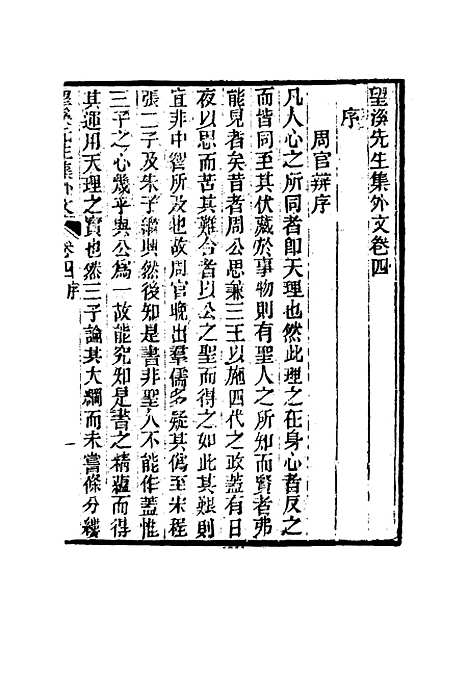 望溪先生集外文卷四
序
周官辨序
凡人心之所同者卽天理也然此理之在身心者反之
而皆同至其伏藏於事物則有聖人之所知而賢者弗
能見者矣昔者周公思兼三王以施四代之政蓋有日
夜以思而苦其難合者以公之聖而得之如此其艱則
宜非中智所及也故周官晚出羣儒多疑其僞至宋程
張二子及朱子繼興然後知是書非聖人不能作蓋惟
三子之心幾乎與公爲一故能究知是書之精蘊而得
其運用天理之實也然三子論其大綱而未嘗條分縷
望溪先生集外文 卷四 序 一